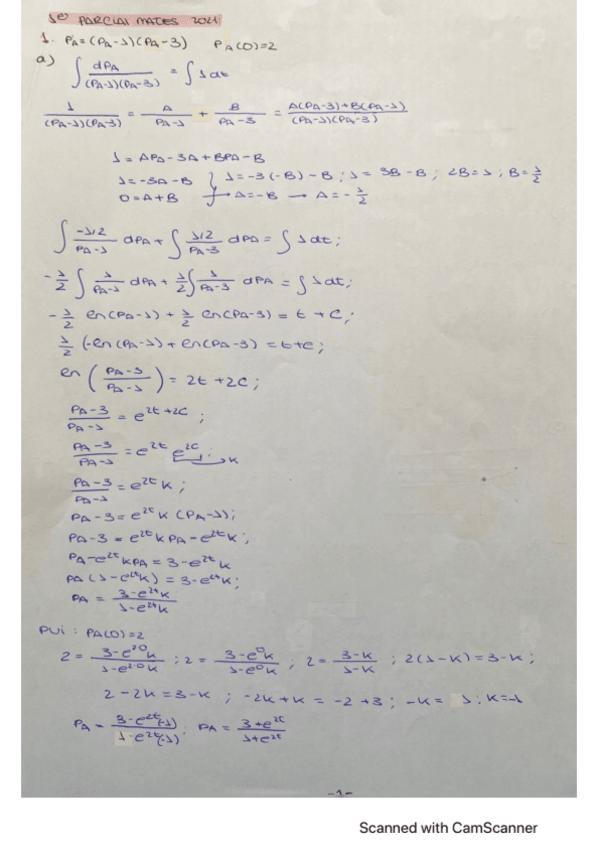 1er PARCIAL MATES 2021
1. P'A = (PA-1)(PA-3) PA(0)=2
a) ∫ dPA/((PA-1)(PA-3)) = ∫ 1 dt
1/((PA-1)(PA-3)) = A/(PA-1) + B/(PA-3) = (A(PA-3)+B(PA-1))/((PA-1)(PA-3))
1 = APA - 3A + BPA - B
1 = -3A - B } 1 = -3(-B) - B ; 1 = 3B - B ; 2B = 1 ; B = 1/2
0 = A + B → A = -B → A = -1/2
∫ (-1/2)/(PA-1) dPA + ∫ (1/2)/(PA-3) dPA = ∫ 1 dt ;
-1/2 ∫ 1/(PA-1) dPA + 1/2 ∫ 1/(PA-3) dPA = ∫ 1 dt ;
-1/2 ln(PA-1) + 1/2 ln(PA-3) = t + C ;
1/2 (-ln(PA-1) + ln(PA-3) = t + C ;
ln ((PA-3)/(PA-1)) = 2t + 2C ;
(PA-3)/(PA-1) = e^(2t+2C) ;
(PA-3)/(PA-1) = e^2t e^2C ; → K
(PA-3)/(PA-1) = e^2t K ;
PA - 3 = e^2t K (PA-1) ;
PA - 3 = e^2t K PA - e^2t K ;
PA - e^2t K PA = 3 - e^2t K
PA (1 - e^2t K) = 3 - e^2t K ;
PA = (3 - e^2t K)/(1 - e^2t K)
PVI : PA(0)=2
2 = (3 - e^2·0 K)/(1 - e^2·0 K) ; 2 = (3 - e^0 K)/(1 - e^0 K) ; 2 = (3-K)/(1-K) ; 2(1-K) = 3-K ;
2 - 2K = 3 - K ; -2K + K = -2 + 3 ; -K = 1 ; K = -1
PA = (3 - e^2t(-1))/(1 - e^2t(-1)) ; PA = (3 + e^2t)/(1 + e^2t)
-1-
Scanned with CamScanner